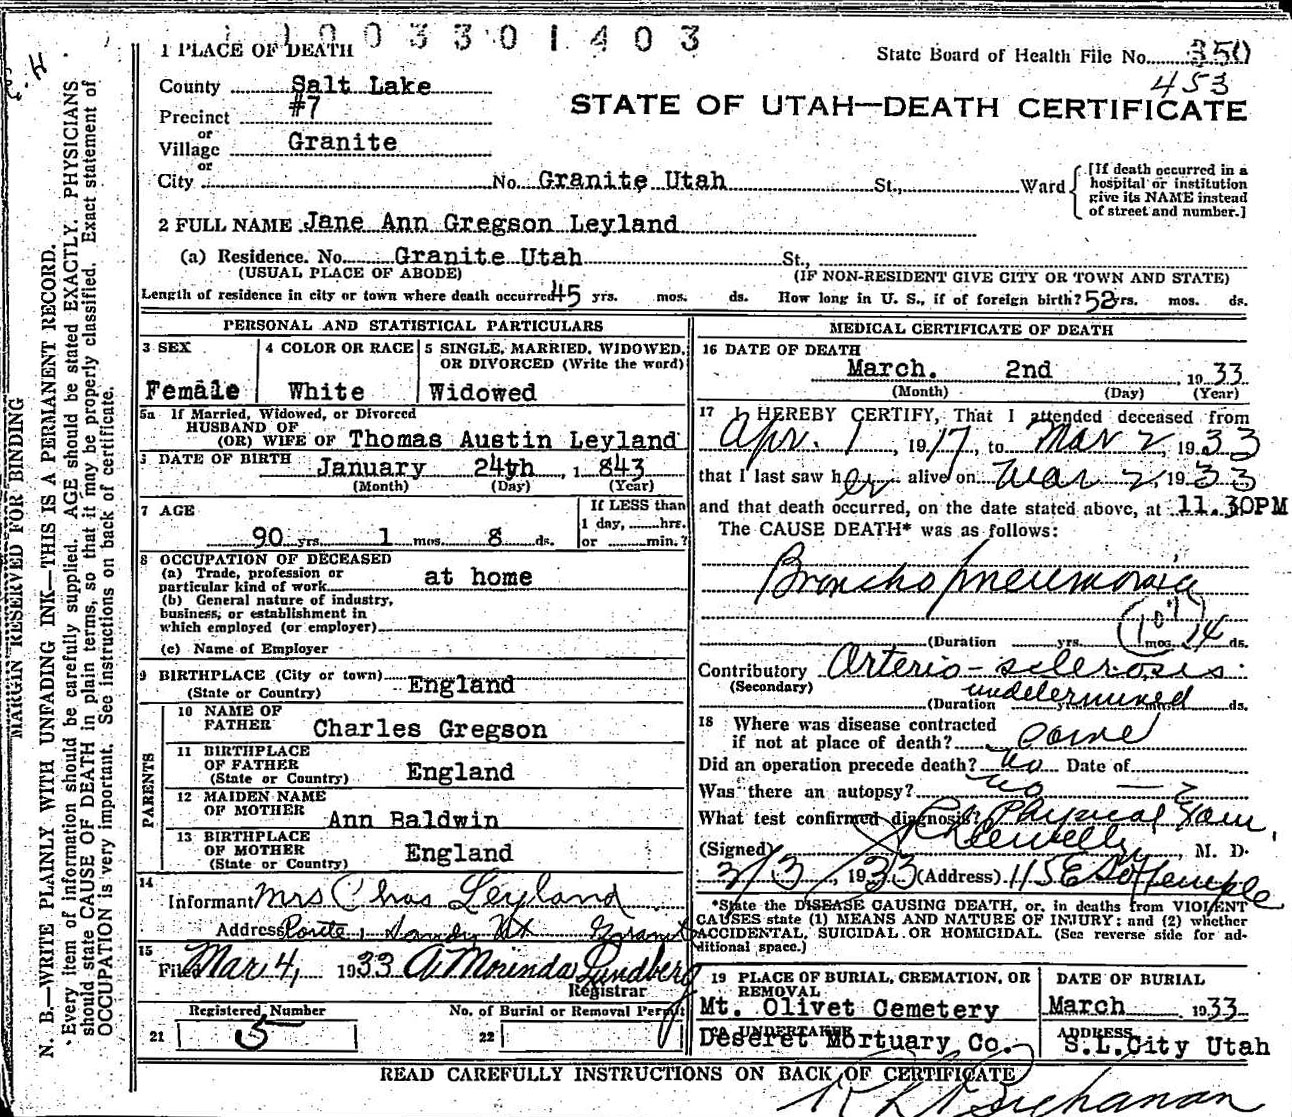 1003301403
1 PLACE OF DEATH
State Board of Health File No. 350
453
County Salt Lake
STATE OF UTAH—DEATH CERTIFICATE
Precinct #7
or
Village Granite
or
City No. Granite Utah St., Ward
[If death occurred in a hospital or institution give its NAME instead of street and number.]
2 FULL NAME Jane Ann Gregson Leyland
(a) Residence. No. Granite Utah St.,
(USUAL PLACE OF ABODE) (IF NON-RESIDENT GIVE CITY OR TOWN AND STATE)
Length of residence in city or town where death occurred 45 yrs. mos. ds. How long in U. S., if of foreign birth? 52 yrs. mos. ds.
PERSONAL AND STATISTICAL PARTICULARS
3 SEX
Female
4 COLOR OR RACE
White
5 SINGLE, MARRIED, WIDOWED,
OR DIVORCED (Write the word)
Widowed
5a If Married, Widowed, or Divorced
HUSBAND OF
(OR) WIFE OF Thomas Austin Leyland
DATE OF BIRTH January 24th, 1843
(Month) (Day) (Year)
7 AGE
90 yrs 1 mos 8 ds.
If LESS than
1 day, hrs.
or min.?
8 OCCUPATION OF DECEASED
(a) Trade, profession or
particular kind of work at home
(b) General nature of industry,
business, or establishment in
which employed (or employer)
(c) Name of Employer
9 BIRTHPLACE (City or town)
(State or Country) England
PARENTS
10 NAME OF
FATHER Charles Gregson
11 BIRTHPLACE
OF FATHER
(State or Country) England
12 MAIDEN NAME
OF MOTHER Ann Baldwin
13 BIRTHPLACE
OF MOTHER
(State or Country) England
14
Informant Mrs Chas Leyland
Address Route 1 Sandy Ut Granite
15
Filed Mar 4, 1933 A Morinda Lundberg
Registrar
Registered Number
21 5
No. of Burial or Removal Permit
22
MEDICAL CERTIFICATE OF DEATH
16 DATE OF DEATH
March. 2nd 1933
(Month) (Day) (Year)
17 I HEREBY CERTIFY, That I attended deceased from
Apr. 1, 1917, to Mar 2, 1933
that I last saw her alive on Mar 2, 1933
and that death occurred, on the date stated above, at 11.30PM
The CAUSE DEATH* was as follows:
Broncho pneumonia
107
(Duration yrs. mos. 14 ds.
Contributory Arterio-sclerosis
(Secondary)
(Duration undetermined ds.
18 Where was disease contracted
if not at place of death?
Did an operation precede death? no Date of
Was there an autopsy? no
What test confirmed diagnosis? Physical Exam,
(Signed) M. D.
3/3, 1933 (Address) 115 E So Temple
*State the DISEASE CAUSING DEATH, or, in deaths from VIOLENT
CAUSES state (1) MEANS AND NATURE OF INJURY; and (2) whether
ACCIDENTAL, SUICIDAL OR HOMICIDAL. (See reverse side for ad-
ditional space.)
19 PLACE OF BURIAL, CREMATION, OR
REMOVAL
Mt. Olivet Cemetery
DATE OF BURIAL
March 1933
UNDERTAKER
Deseret Mortuary Co.
ADDRESS
S.L.City Utah
READ CAREFULLY INSTRUCTIONS ON BACK OF CERTIFICATE
Buchanan
MARGIN RESERVED FOR BINDING
N. B.—WRITE PLAINLY WITH UNFADING INK—THIS IS A PERMANENT RECORD.
Every item of information should be carefully supplied. AGE should be stated EXACTLY. PHYSICIANS
should state CAUSE OF DEATH in plain terms, so that it may be properly classified. Exact statement of
OCCUPATION is very important. See instructions on back of certificate.